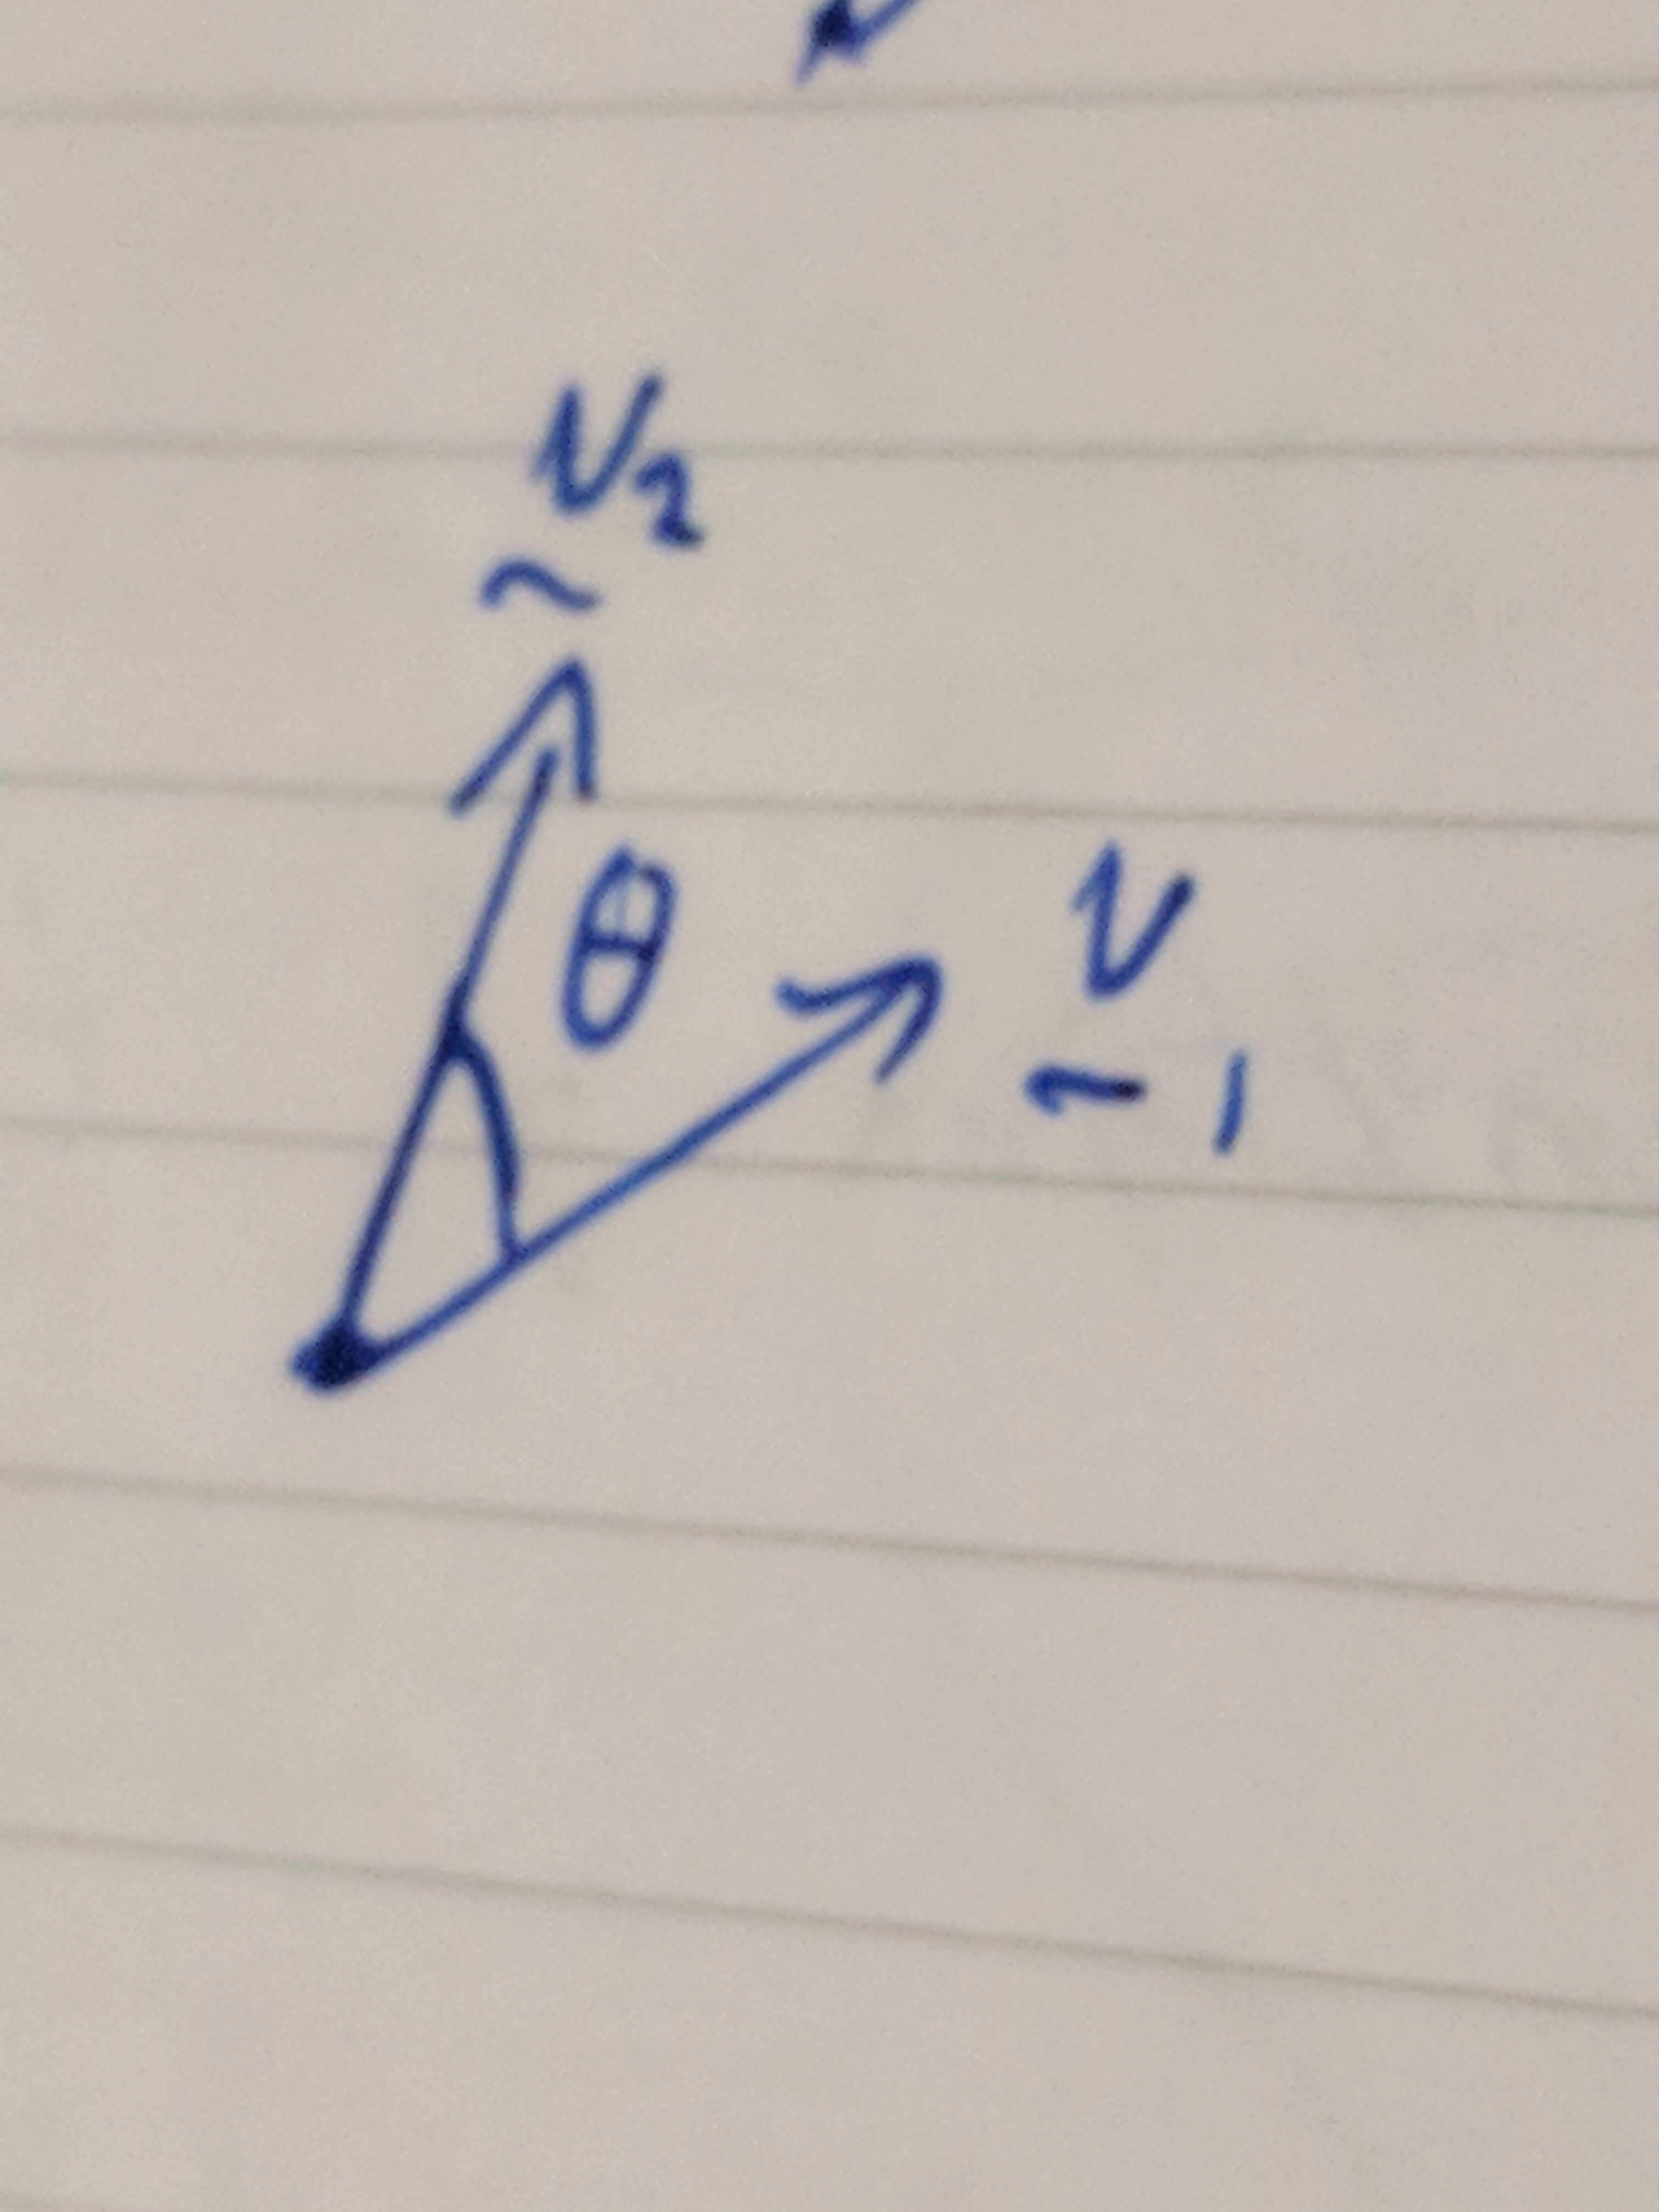 v₂
~
θ
v
~ 1